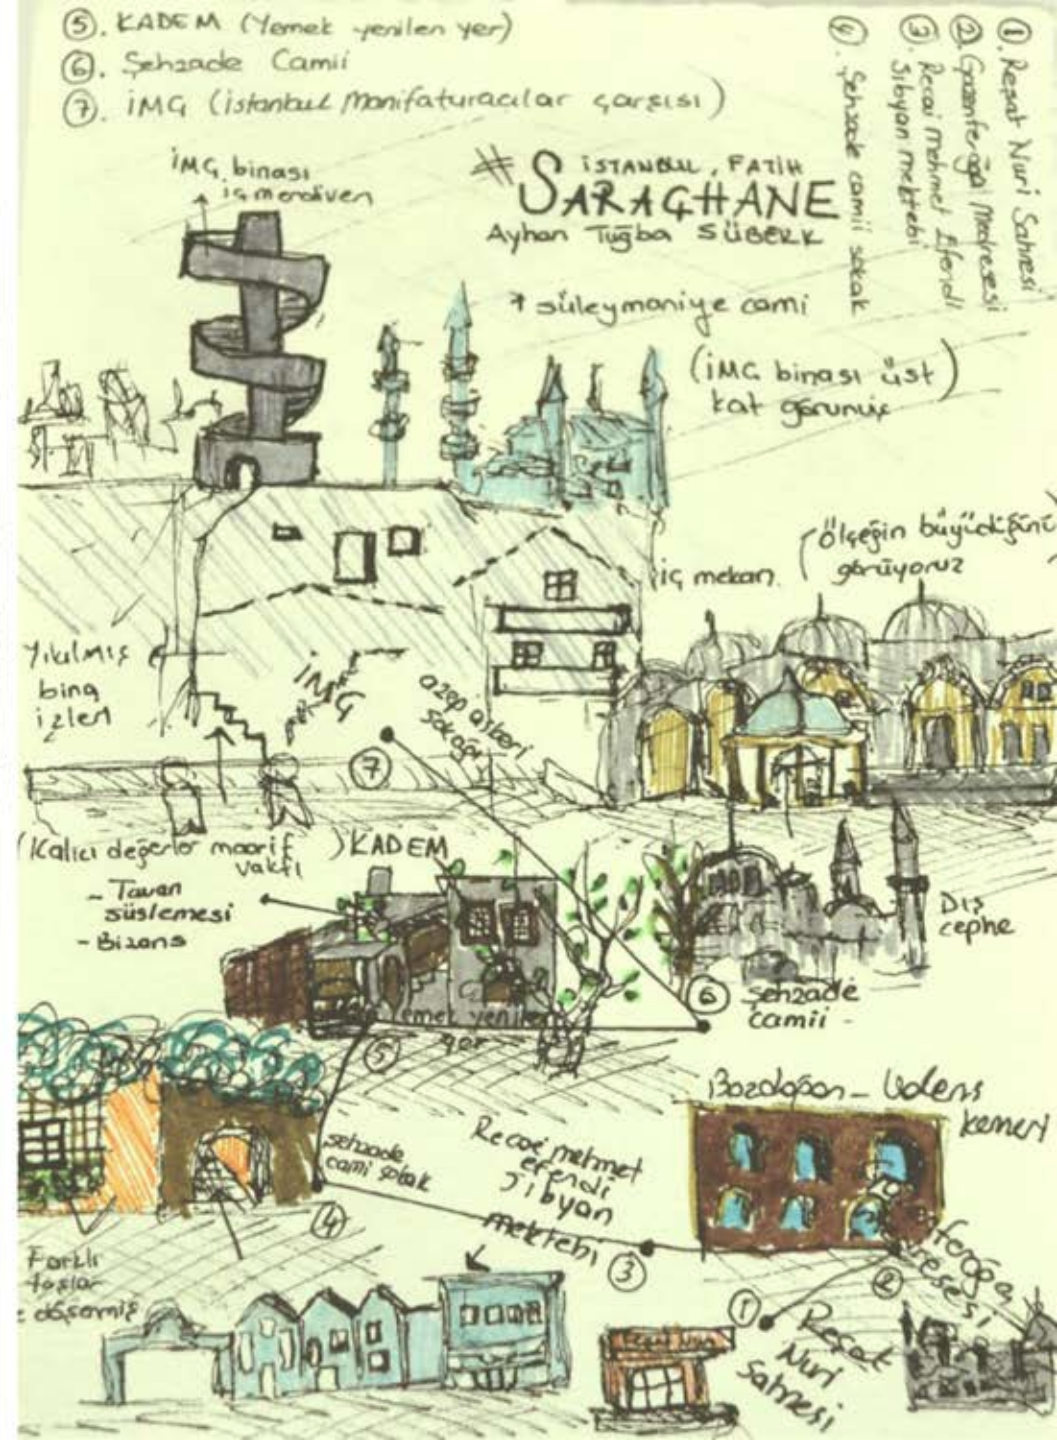 5. KADEM (Yemek yenilen yer)
6. Şehzade Camii
7. İMÇ (İstanbul Manifaturacılar çarşısı)
1. Reşat Nuri Sahnesi
2. Gazanferağa Medresesi
3. Recai Mehmet Efendi
Sıbyan mektebi
4. Şehzade camii sokak
İMÇ binası
iç merdiven
# İSTANBUL, FATİH
SARAÇHANE
Ayhan Tuğba SÜBERK
süleymaniye cami
(İMÇ binası üst)
kat görünüş
Ölçeğin büyüdüğünü
görüyoruz
iç mekan
Yıkılmış
bina
izleri
İMÇ
azep askeri
sokağı
7
(Kalıcı değerler maarif
vakfı)
KADEM
- Tavan
süslemesi
- Bizans
Dış
cephe
6 Şehzade
camii -
Yemek yenilen
yer
5
Bozdoğan - Valens
kemeri
şehzade
cami sokak
4
Recai mehmet
efendi
sıbyan
mektebi
3
Farklı
taşlar
döşenmiş
2
1
Reşat
Nuri
Sahnesi